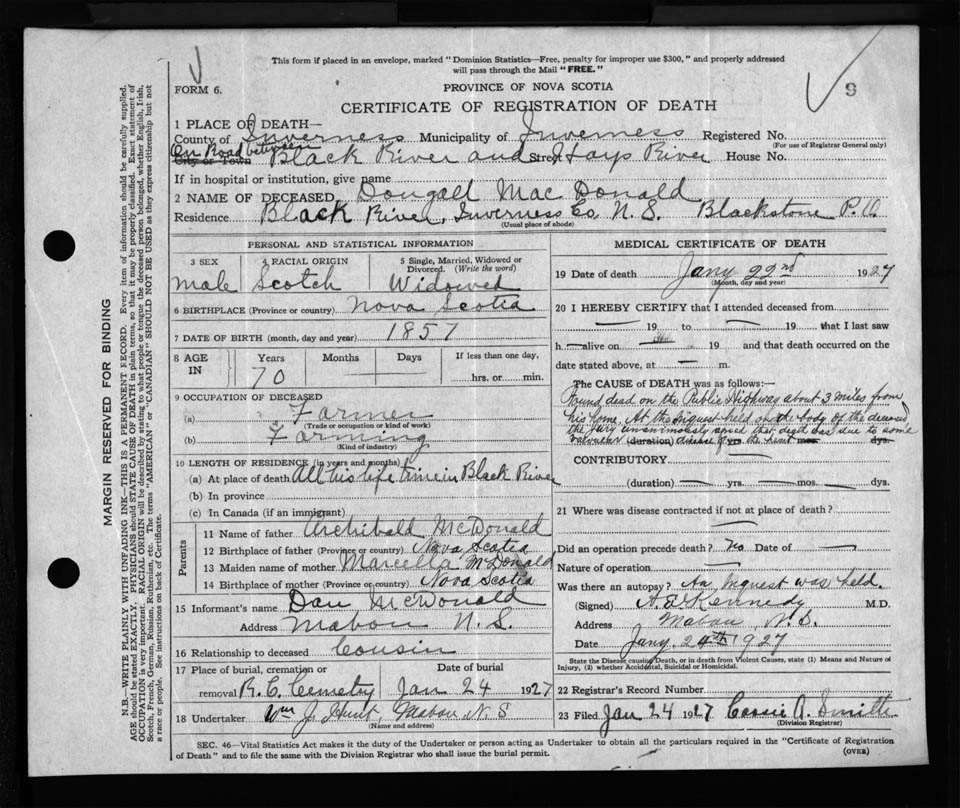 This form if placed in an envelope, marked "Dominion Statistics—Free, penalty for improper use $300," and properly addressed
will pass through the Mail "FREE."
FORM 6.
PROVINCE OF NOVA SCOTIA
9
CERTIFICATE OF REGISTRATION OF DEATH
1 PLACE OF DEATH—
County of Inverness Municipality of Inverness Registered No.
(For use of Registrar General only)
On Road between
City or Town Black River and Street Hays River House No.
If in hospital or institution, give name
2 NAME OF DECEASED Dougall MacDonald
Residence Black River, Inverness Co. N. S. Blackstone P.O.
(Usual place of abode)
PERSONAL AND STATISTICAL INFORMATION
3 SEX 4 RACIAL ORIGIN 5 Single, Married, Widowed or
Divorced. (Write the word)
Male Scotch Widowed
6 BIRTHPLACE (Province or country) Nova Scotia
7 DATE OF BIRTH (month, day and year) 1857
8 AGE IN Years Months Days If less than one day,
70 hrs. or min.
9 OCCUPATION OF DECEASED
(a) Farmer
(Trade or occupation or kind of work)
(b) Farming
(Kind of industry)
10 LENGTH OF RESIDENCE (in years and months)
(a) At place of death All his life time in Black River
(b) In province
(c) In Canada (if an immigrant)
Parents
11 Name of father Archibald McDonald
12 Birthplace of father (Province or country) Nova Scotia
13 Maiden name of mother Marcella McDonald
14 Birthplace of mother (Province or country) Nova Scotia
15 Informant's name Dan McDonald
Address Mabou N. S.
16 Relationship to deceased Cousin
17 Place of burial, cremation or Date of burial
removal R. C. Cemetry Jan 24 1927
18 Undertaker Wm J. Hunt, Mabou N S
(Name and address)
MEDICAL CERTIFICATE OF DEATH
19 Date of death Jany 22nd 1927
(Month, day and year)
20 I HEREBY CERTIFY that I attended deceased from
— 19 to — 19 that I last saw
h — alive on — 19 and that death occurred on the
date stated above, at — m.
The CAUSE of DEATH was as follows:—
Found dead on the Public Highway about 3 miles from
his home. At the Inquest held on the body of the deceased
the jury unanimously agreed that death was due to some
valvular (duration) disease of yrs the heart mos dys.
CONTRIBUTORY —
(duration) — yrs. — mos. — dys.
21 Where was disease contracted if not at place of death?
—
Did an operation precede death? No Date of —
Nature of operation —
Was there an autopsy? An Inquest was held.
(Signed) A. A. Kennedy M.D.
Address Mabou, N.S.
Date Jany. 24th 1927
State the Disease causing Death, or in death from Violent Causes, state (1) Means and Nature of
Injury, (2) whether Accidental, Suicidal or Homicidal.
22 Registrar's Record Number
23 Filed Jan 24 1927 Cassie A. Smith
(Division Registrar)
SEC. 46—Vital Statistics Act makes it the duty of the Undertaker or person acting as Undertaker to obtain all the particulars required in the "Certificate of Registration
of Death" and to file the same with the Division Registrar who shall issue the burial permit.
(OVER)
MARGIN RESERVED FOR BINDING
N.B.—WRITE PLAINLY WITH UNFADING INK—THIS IS A PERMANENT RECORD. Every item of information should be carefully supplied.
AGE should be stated EXACTLY. PHYSICIANS should STATE CAUSE OF DEATH in plain terms, so that it may be properly classified. Exact statement of
OCCUPATION is very important. RACIAL ORIGIN will be described by stating to what people or tongue the deceased person belonged, whether English, Irish,
Scotch, French, German, Russian, Ruthenian, etc. The terms "AMERICAN" or "CANADIAN" SHOULD NOT BE USED as they express citizenship but not
a race or people. See instructions on back of Certificate.